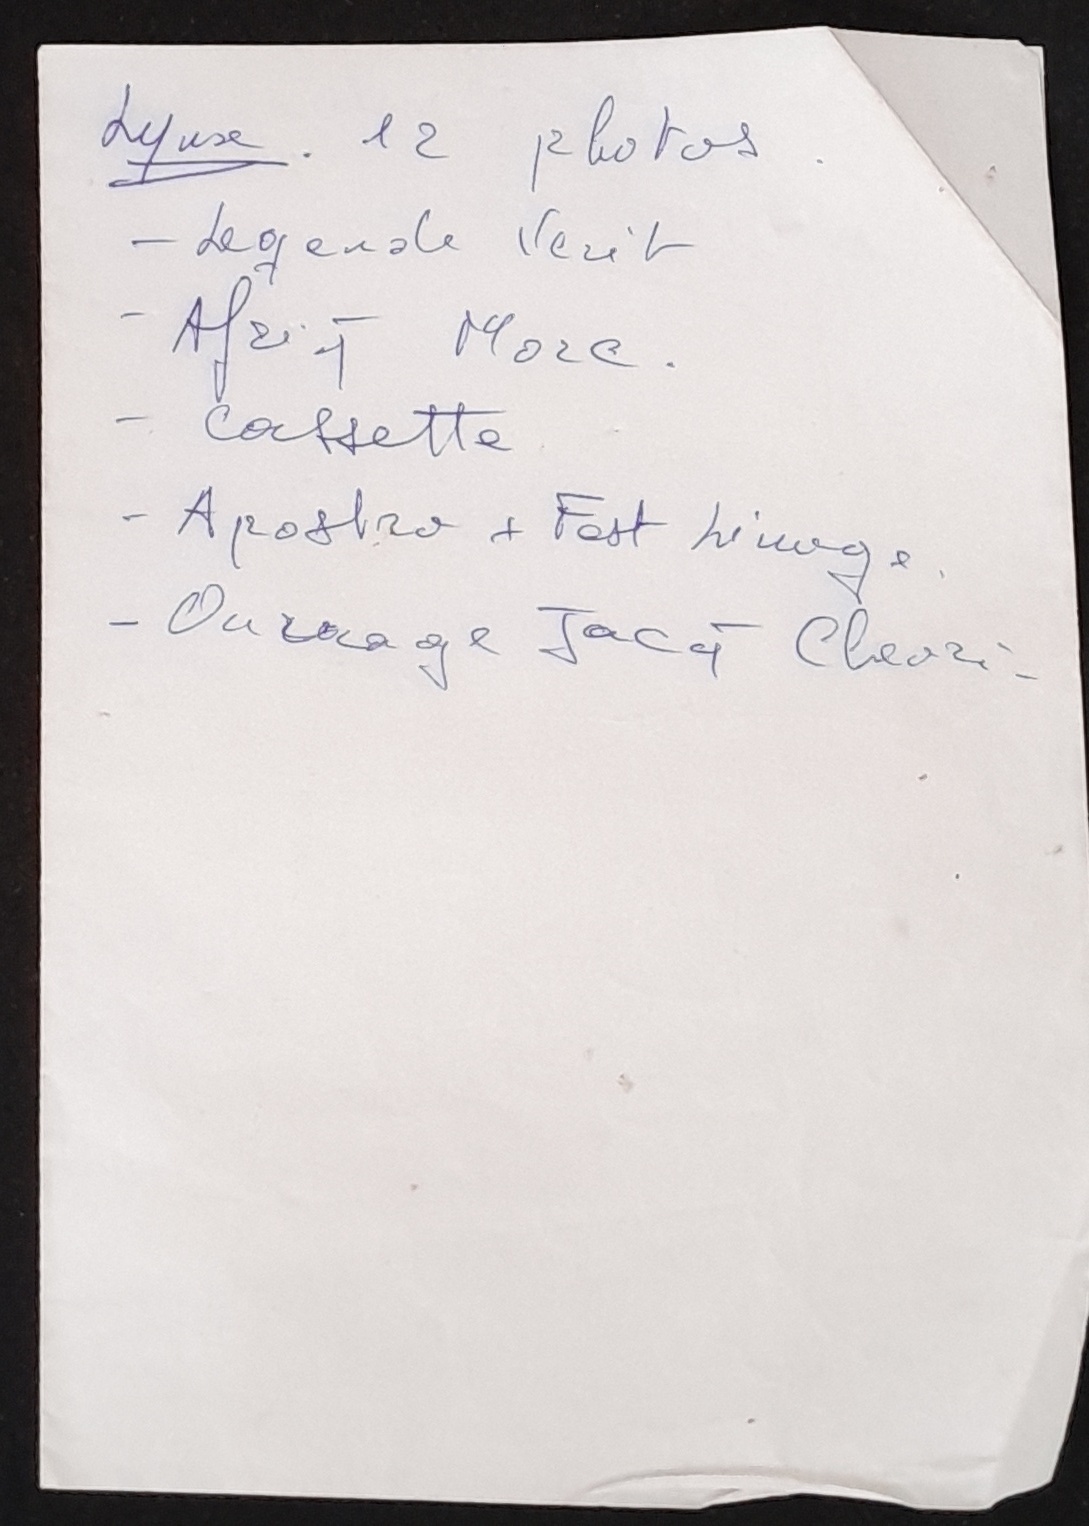 Lynxe. 12 photos.
- Legende Verit
- Afriq More.
- Cassette
- Apostro + Fest Limoge.
- Ouvrage Jacq Chevri-